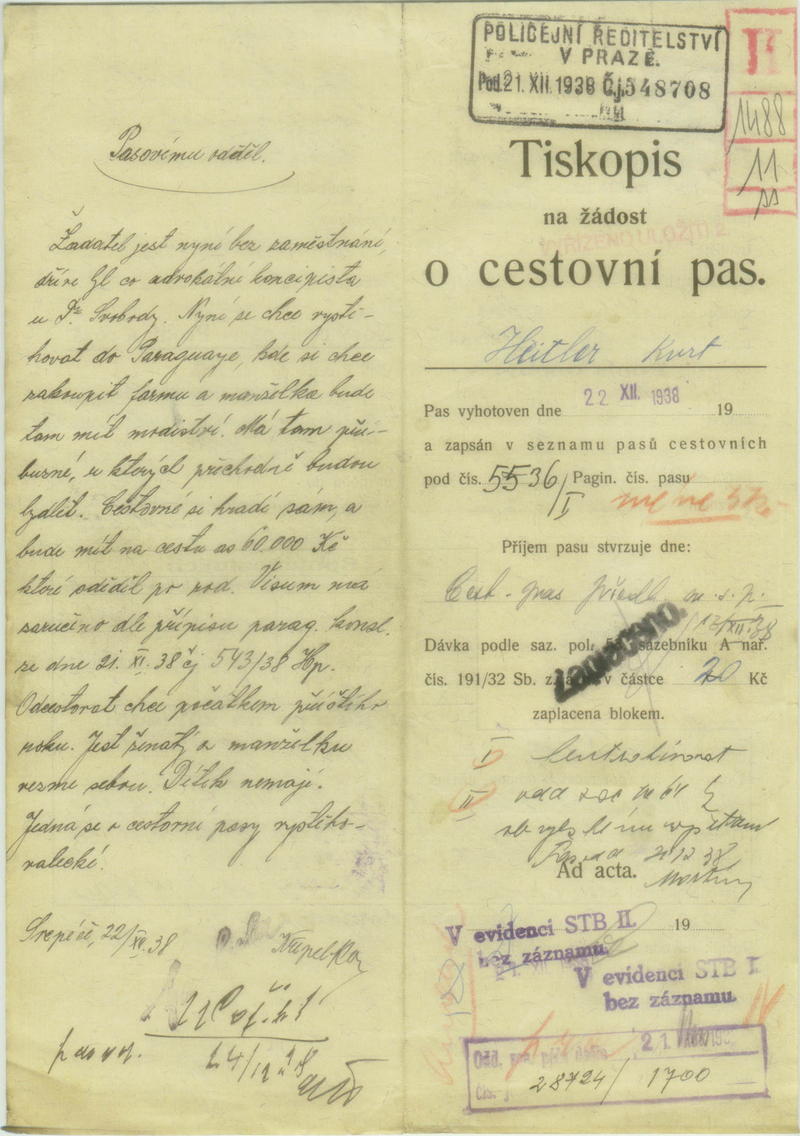 Pasovému odděl.
Žadatel jest nyní bez zaměstnání,
dříve byl co advokátní koncipista
u Dr Svobody. Nyní se chce vystě-
hovat do Paraguaye, kde si chce
zakoupit farmu a manželka bude
tam mít modiství. Má tam pří-
buzné, u kterých přechodně budou
bydlet. Cestovné si hradí sám, a
bude mít na cestu as 60.000 Kč
které zdědil po rod. Visum má
zaručeno dle přípisu parag. konsl.
ze dne 21. XI. 38 čj 543/38 Hp.
Odcestovat chce počátkem příštího
roku. Jest ženatý a manželku
vezme sebou. Dítek nemají.
Jedná se o cestovní pasy vystěho-
valecké.
22/XII.38
24/12 38
POLICEJNÍ ŘEDITELSTVÍ
V PRAZE.
Pod. 21. XII. 1938 Čj. 548708
II
1488
11
Tiskopis
na žádost
o cestovní pas.
Heitler Kurt
Pas vyhotoven dne 22 XII. 1938 19
a zapsán v seznamu pasů cestovních
pod čís. 5536/I Pagin. čís. pasu
Příjem pasu stvrzuje dne:
Cest. pas
Dávka podle saz. pol. sazebníku A nař.
Zaplaceno.
čís. 191/32 Sb. z. a n. v částce 20 Kč
zaplacena blokem.
I
II
Ad acta.
19
V evidenci STB II.
bez záznamu.
V evidenci STB I.
bez záznamu.
21
28724/1700